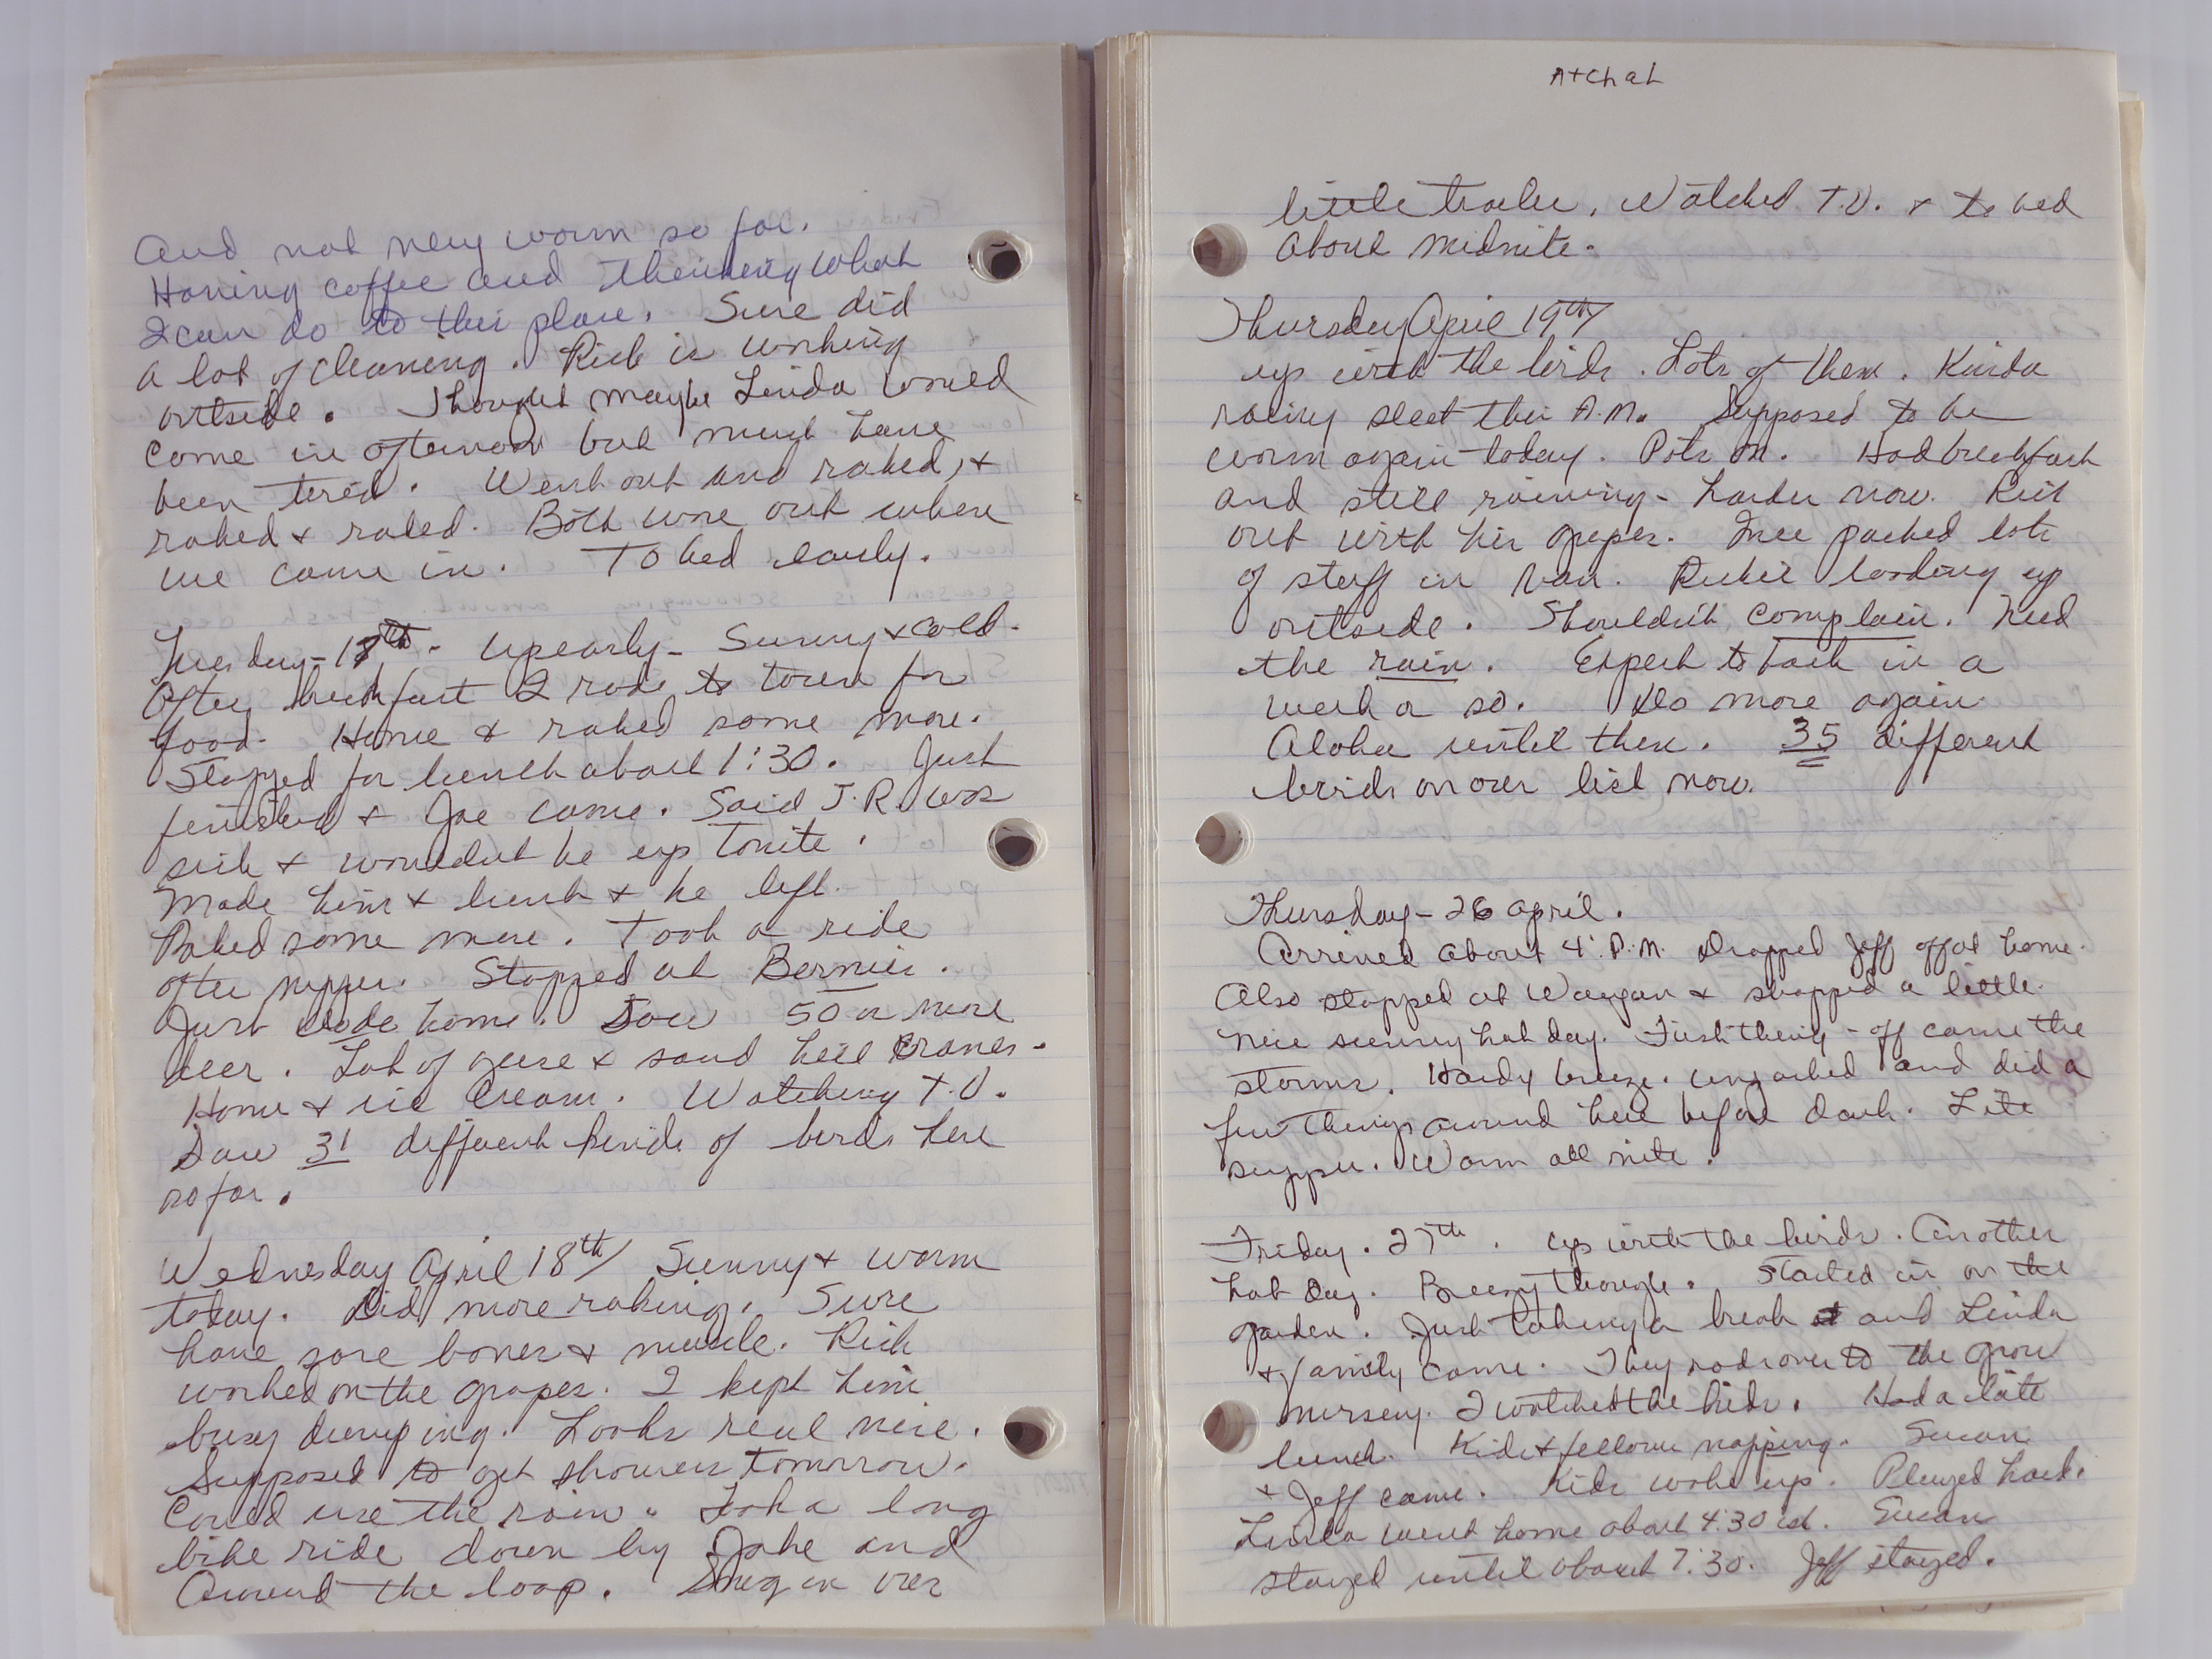 And not very warm so far.
Having coffee and thinking what
I can do to this place. Sure did
a lot of cleaning. Rich is working
outside. Thought maybe Linda would
come in afternoon but might have
been tired. Went out and raked, &
raked & raked. Both wore out when
we came in. To bed early.
Tuesday - 17th - Up early - Sunny & cold.
After breakfast I rode to town for
food. Home & raked some more.
Stopped for lunch about 1:30. Just
finished & Joe came. Said J.R. was
sick & wouldnt be up tonite.
Made him & lunch & he left.
Raked some more. Took a ride
after supper. Stopped at Bernies.
Just rode home. Saw 50 or more
deer. Lot of geese & sand hill cranes -
Home & ice cream. Watching T.V.
Saw 31 different kinds of birds here
so far.
Wednesday April 18th/ Sunny & warm
today. Did more raking. Sure
have sore bones & muscle. Rich
worked on the grapes. I kept him
busy dumping. Looks real nice.
Supposed to get showers tomorrow.
Could use the rain. Took a long
bike ride down by Jake and
Around the loop. Snug in our
Atchat
little trailer. Watched T.V. & to bed
about midnite.
Thursday April 19th/
up with the birds. Lots of them. Kinda
rainy sleet this A.M. Supposed to be
warm again today. Pots on. Had breakfast
and still raining - harder now. Rich
out with his grapes. Ive packed lots
of stuff in van. Richie loading up
outside. Shouldn't complain. Need
the rain. Expect to back in a
week or so. Do more again.
Aloha until then. 35 different
birds on our list now.
Thursday - 26 April.
Arrived about 4: P.M. Dropped Jeff off at home.
Also stopped at & shopped a little.
Nice sunny hot day. First thing - off came the
storms. Hardy breeze. unpacked and did a
few things around here before dark. Lite
supper. Warm all nite.
Friday. 27th. Up with the birds. Another
hot day. Breezy though. Started in on the
garden. Just taking a break and Linda
& family came. They rode over to the grow
nursery. I watched the kids. Had a late
lunch. Kids & fellows napping. Susan
& Jeff came. Kids woke up. Played hard.
Linda went home about 4:30 ish. Susan
stayed until about 7:30. Jeff stayed.